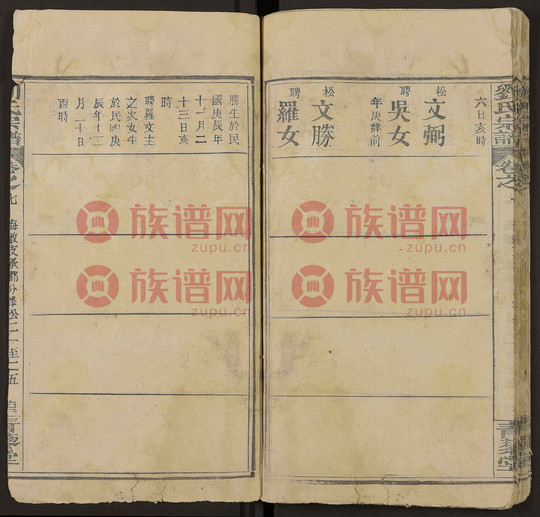 劉氏宗譜
卷之
青藜堂
六日亥時
松
文弼
聘
吳女
年庚詳前
松
文勝
聘
羅女
勝生於民
國庚辰年
十一月二
十三日亥
時
聘羅文主
之次女生
於民國庚
辰年十二
月二十日
酉時
氏宗譜
卷之九
青藜堂
族谱网
zupu.cn
族谱网
zupu.cn
族谱网
zupu.cn
族谱网
zupu.cn